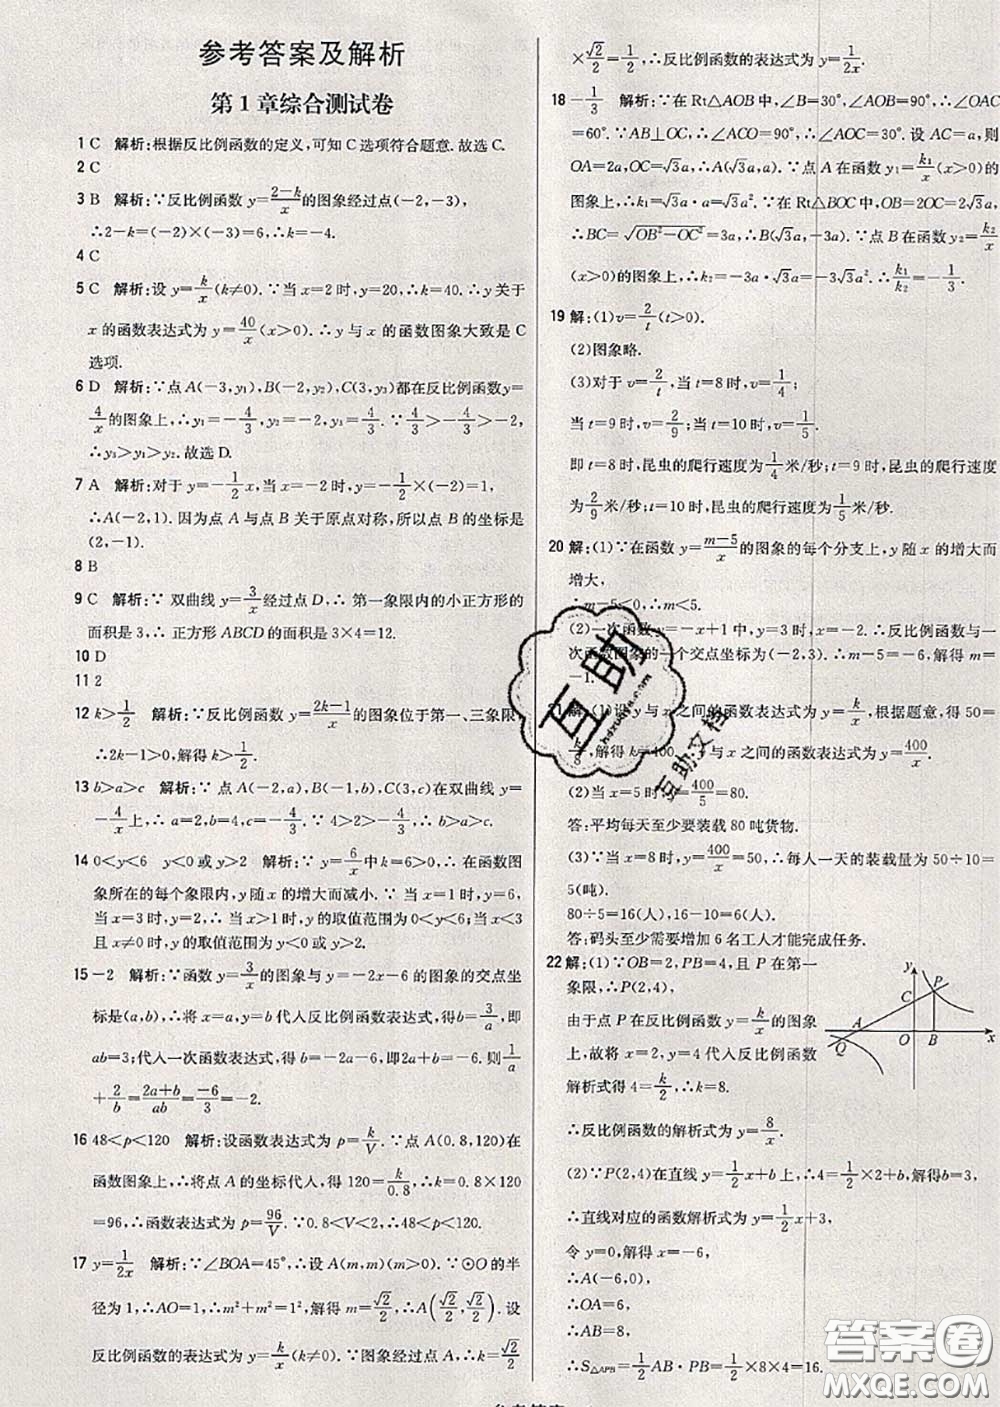 参考答案及解析
第1章综合测试卷
1 C 解析:根据反比例函数的定义,可知C选项符合题意.故选C.
2 C
3 B 解析:∵反比例函数y=\frac{2-k}{x}的图象经过点(-2,-3),
∴2-k=(-2)×(-3)=6,∴k=-4.
4 C
5 C 解析:设y=\frac{k}{x}(k≠0).∵当x=2时,y=20,∴k=40.∴y关于
x的函数表达式为y=\frac{40}{x}(x>0).∴y与x的函数图象大致是C
选项.
6 D 解析:∵点A(-3,y₁),B(-2,y₂),C(3,y₃)都在反比例函数y=
\frac{4}{x}的图象上,∴y₁=-\frac{4}{3},y₂=-2,y₃=\frac{4}{3}.∵\frac{4}{3}>-\frac{4}{3}>-2,
∴y₃>y₁>y₂.故选D.
7 A 解析:对于y=-\frac{1}{2}x,当x=-2时,y=-\frac{1}{2}×(-2)=1,
∴A(-2,1).因为点A与点B关于原点对称,所以点B的坐标是
(2,-1).
8 B
9 C 解析:∵双曲线y=\frac{3}{x}经过点D,∴第一象限内的小正方形的
面积是3,∴正方形ABCD的面积是3×4=12.
10 D
11 2
12 k>\frac{1}{2} 解析:∵反比例函数y=\frac{2k-1}{x}的图象位于第一、三象限,
∴2k-1>0,解得k>\frac{1}{2}.
13 b>a>c 解析:∵点A(-2,a),B(-1,b),C(3,c)在双曲线y=
-\frac{4}{x}上,∴a=2,b=4,c=-\frac{4}{3}.∵4>2>-\frac{4}{3},∴b>a>c.
14 0<y<6 y<0或y>2 解析:∵y=\frac{6}{x}中k=6>0,∴在函数图
象所在的每个象限内,y随x的增大而减小.∵当x=1时,y=6,
当x=3时,y=2,∴当x>1时,y的取值范围为0<y<6;当x<3
且x≠0时,y的取值范围为y<0或y>2.
15 -2 解析:∵函数y=\frac{3}{x}的图象与y=-2x-6的图象的交点坐
标是(a,b),∴将x=a,y=b代入反比例函数表达式,得b=\frac{3}{a},即
ab=3;代入一次函数表达式,得b=-2a-6,即2a+b=-6.则\frac{1}{a}
+\frac{2}{b}=\frac{2a+b}{ab}=\frac{-6}{3}=-2.
16 48<p<120 解析:设函数表达式为p=\frac{k}{V}.∵点A(0.8,120)在
函数图象上,∴将点A的坐标代入,得120=\frac{k}{0.8},∴k=0.8×120
=96,∴函数表达式为p=\frac{96}{V}.∵0.8<V<2,∴48<p<120.
17 y=\frac{1}{2x} 解析:∵∠BOA=45°,∴设A(m,m)(m>0).∵⊙O的半
径为1,∴AO=1,∴m²+m²=1²,解得m=\frac{√2}{2},∴A(\frac{√2}{2},\frac{√2}{2}).设
反比例函数的表达式为y=\frac{k}{x}(k≠0).∵图象经过点A,∴k=\frac{√2}{2}
×\frac{√2}{2}=\frac{1}{2},∴反比例函数的表达式为y=\frac{1}{2x}.
18 -\frac{1}{3} 解析:∵在Rt△AOB中,∠B=30°,∠AOB=90°,∴∠OAC
=60°.∵AB⊥OC,∴∠ACO=90°,∴∠AOC=30°.设AC=a,则
OA=2a,OC=√3a,∴A(√3a,a).∵点A在函数y₁=\frac{k₁}{x}(x>0)的
图象上,∴k₁=√3a·a=√3a².∵在Rt△BOC中,OB=2OC=2√3a,
∴BC=√(OB²-OC²)=3a,∴B(√3a,-3a).∵点B在函数y₂=\frac{k₂}{x}
(x>0)的图象上,∴k₂=-3a·√3a=-3√3a².∴\frac{k₁}{k₂}=-\frac{1}{3}.
19 解:(1)v=\frac{2}{t}(t>0).
(2)图象略.
(3)对于v=\frac{2}{t},当t=8时,v=\frac{1}{4};
当t=9时,v=\frac{2}{9};当t=10时,v=\frac{1}{5}.
即t=8时,昆虫的爬行速度为\frac{1}{4}米/秒;t=9时,昆虫的爬行速度为
\frac{2}{9}米/秒;t=10时,昆虫的爬行速度为\frac{1}{5}米/秒.
20 解:(1)∵在函数y=\frac{m-5}{x}的图象的每个分支上,y随x的增大而
增大,
∴m-5<0,∴m<5.
(2)一次函数y=-x+1中,当x=-2时,y=3,∴反比例函数与一
次函数图象的一个交点坐标为(-2,3).∴m-5=-6,∴m=
-1.
21 解:(1)设y与x之间的函数表达式为y=\frac{k}{x},根据题意,得50=
\frac{k}{8},解得k=400,∴y与x之间的函数表达式为y=\frac{400}{x}.
(2)当x=5时,y=\frac{400}{5}=80.
答:平均每天至少要装载80吨货物.
(3)∵当x=8时,y=\frac{400}{x}=50,∴每人一天的装载量为50÷10=
5(吨).
80÷5=16(人),16-10=6(人).
答:码头至少需要增加6名工人才能完成任务.
22 解:(1)∵OB=2,PB=4,且P在第一
象限,∴P(2,4),
由于点P在反比例函数y=\frac{k}{x}的图象
上,故将x=2,y=4代入反比例函数
解析式得4=\frac{k}{2},∴k=8.
∴反比例函数的解析式为y=\frac{8}{x}.
(2)∵P(2,4)在直线y=\frac{1}{2}x+b上,∴4=\frac{1}{2}×2+b,解得b=3,
∴直线对应的函数解析式为y=\frac{1}{2}x+3,
令y=0,解得x=-6;
∴A(-6,0),
∴OA=6,
∴AB=8,
∴S△APB=\frac{1}{2}AB·PB=\frac{1}{2}×8×4=16.
y
P
C
A
Q
O
B
x
互助
hdxuexw.com
互助文档
答案圈
MXQE.COM
参考答案